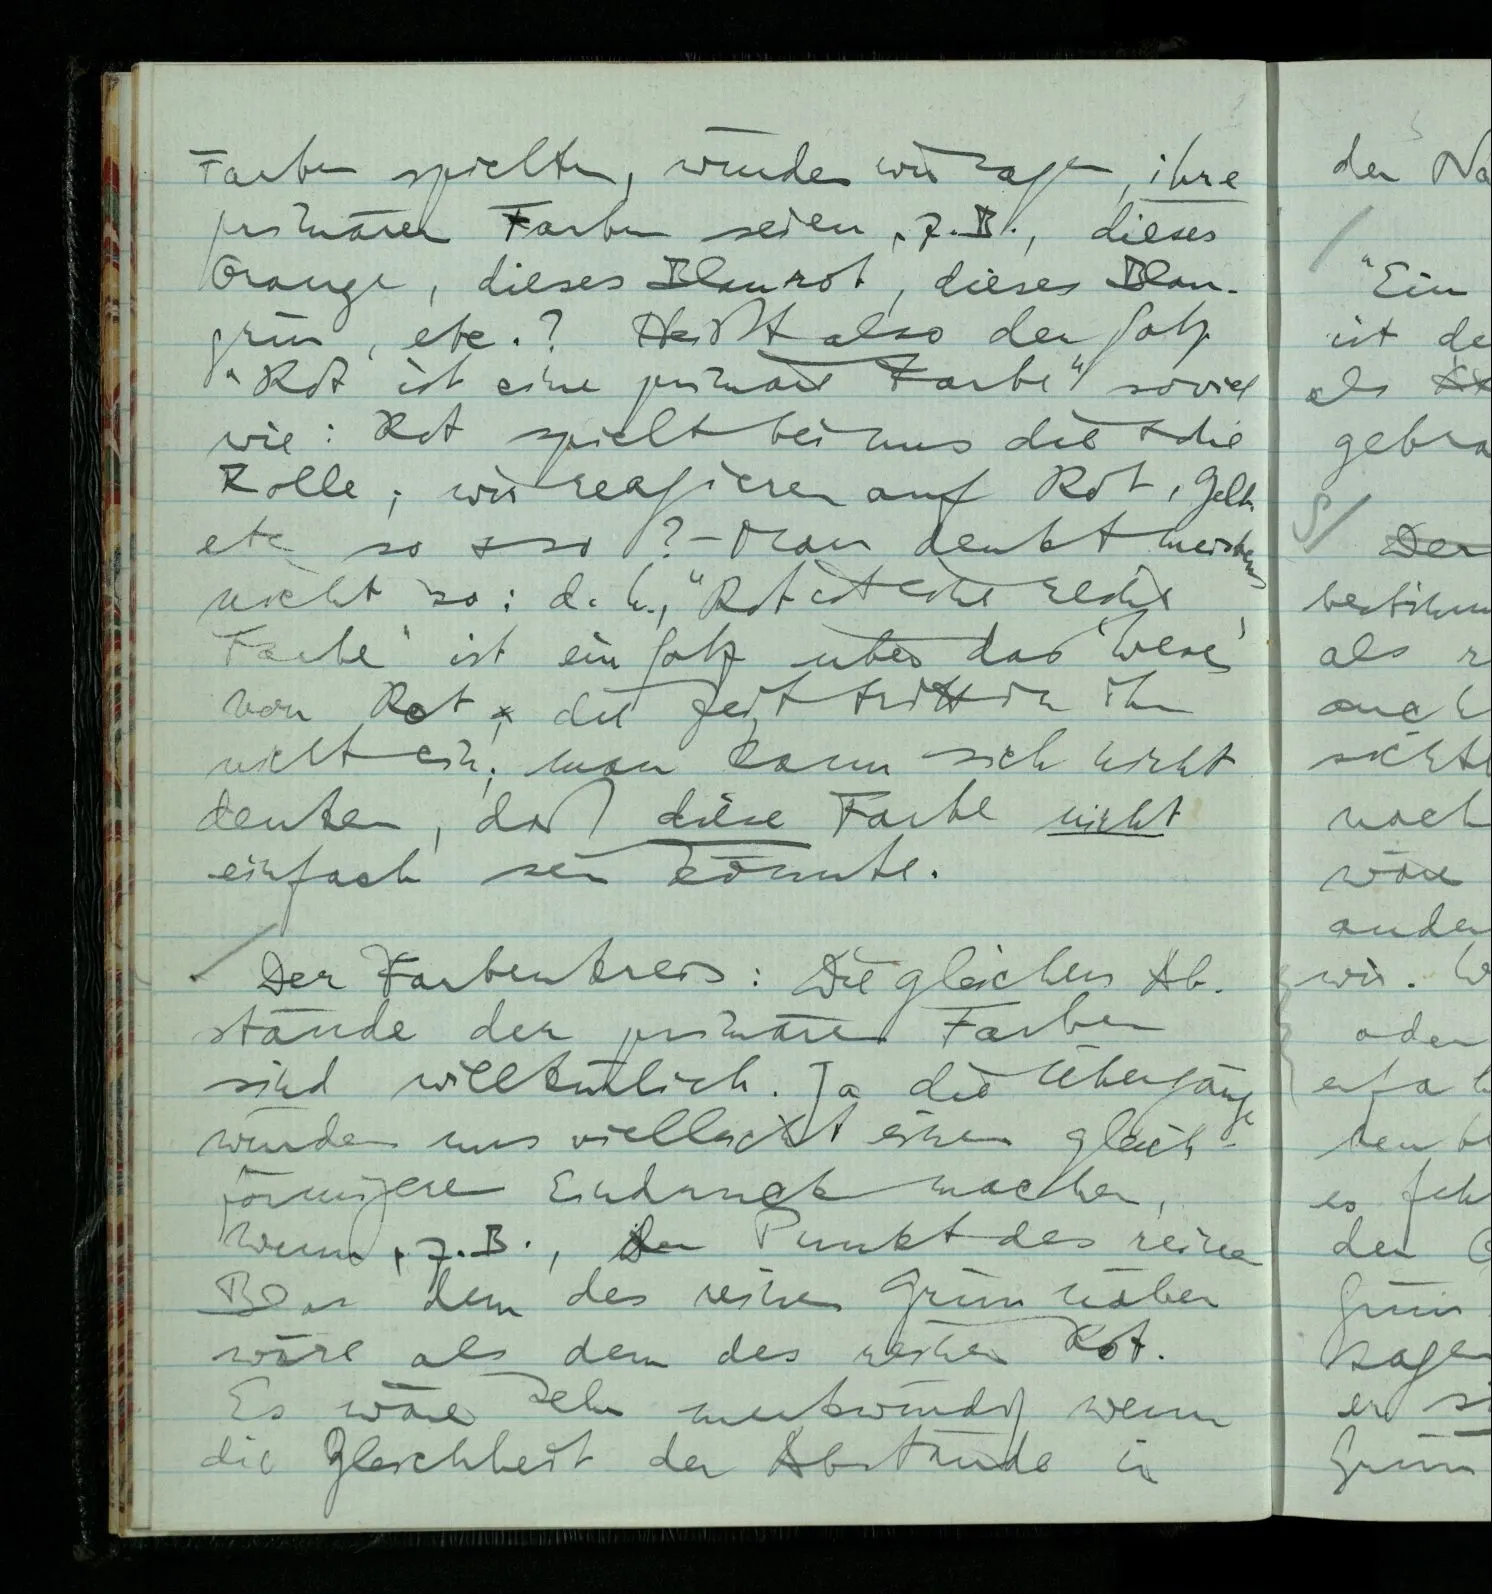 Farben spielten, würden wir sagen, ihre
primären Farben seien, z.B., dieses
Orange, dieses Blaurot, dieses Blau-
grün, etc.? Heißt also der Satz
"Rot ist eine primäre Farbe" soviel
wie: Rot spielt bei uns die + die
Rolle; wir reagieren auf Rot, Gelb
etc so + so? – Man denkt meistens
nicht so: d.h., "Rot ist eine reine
Farbe" ist ein Satz über das 'Wesen'
von Rot, die Zeit tritt in ihn
nicht ein; man kann sich nicht
denken, daß diese Farbe nicht
einfach sein könnte.
/ Der Farbenkreis: Die gleichen Ab-
stände der primären Farben
sind willkürlich. Ja die Übergänge
würden uns vielleicht einen gleich-
förmigeren Eindruck machen,
wenn, z.B., der Punkt des reinen
Blau dem des reinen Grün näher
wäre als dem des reinen Rot.
Es wäre sehr merkwürdig wenn
die Gleichheit der Abstände in
der Na
/
"Ein
ist de
als
gebra
S/ Der
bestimm
als r
auch
sicht
noch
wäre
ander
wir. W
oder
erfa
es feh
der G
Grün
sagen
er si
Grün